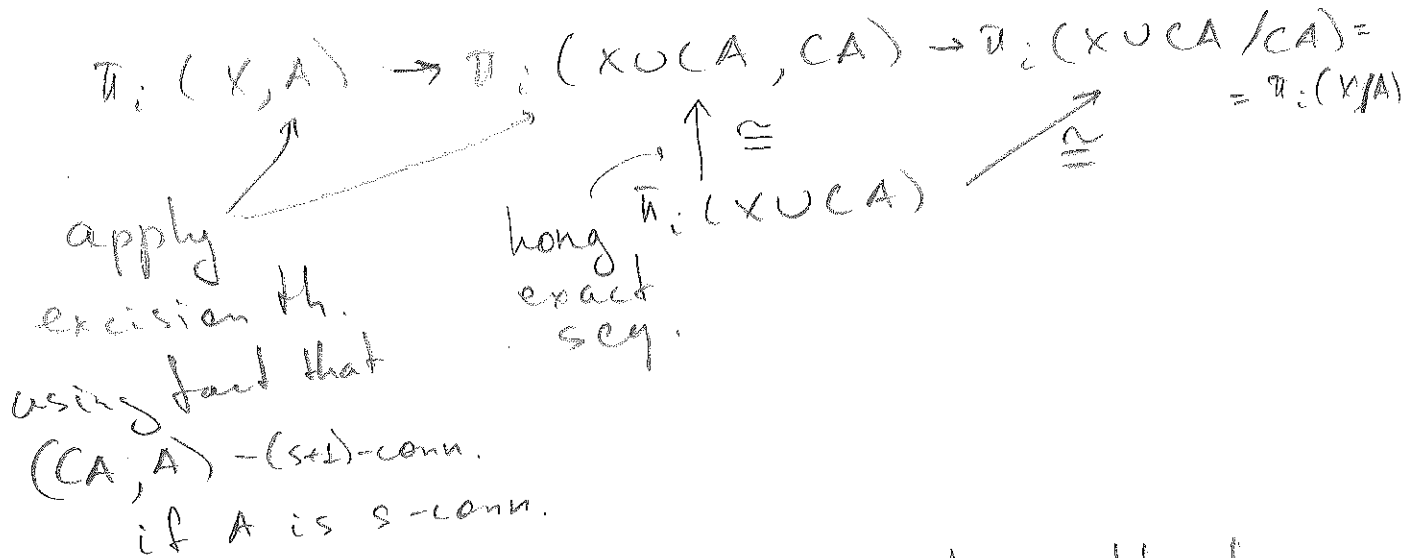 π_i (X, A) → π_i (X∪CA, CA) → π_i (X∪CA / CA) =
= π_i (X/A)
≅
≅
π_i (X∪CA)
apply
excision th.
using fact that
(CA, A) - (s+1)-conn.
if A is s-conn.
Long
exact
seq.